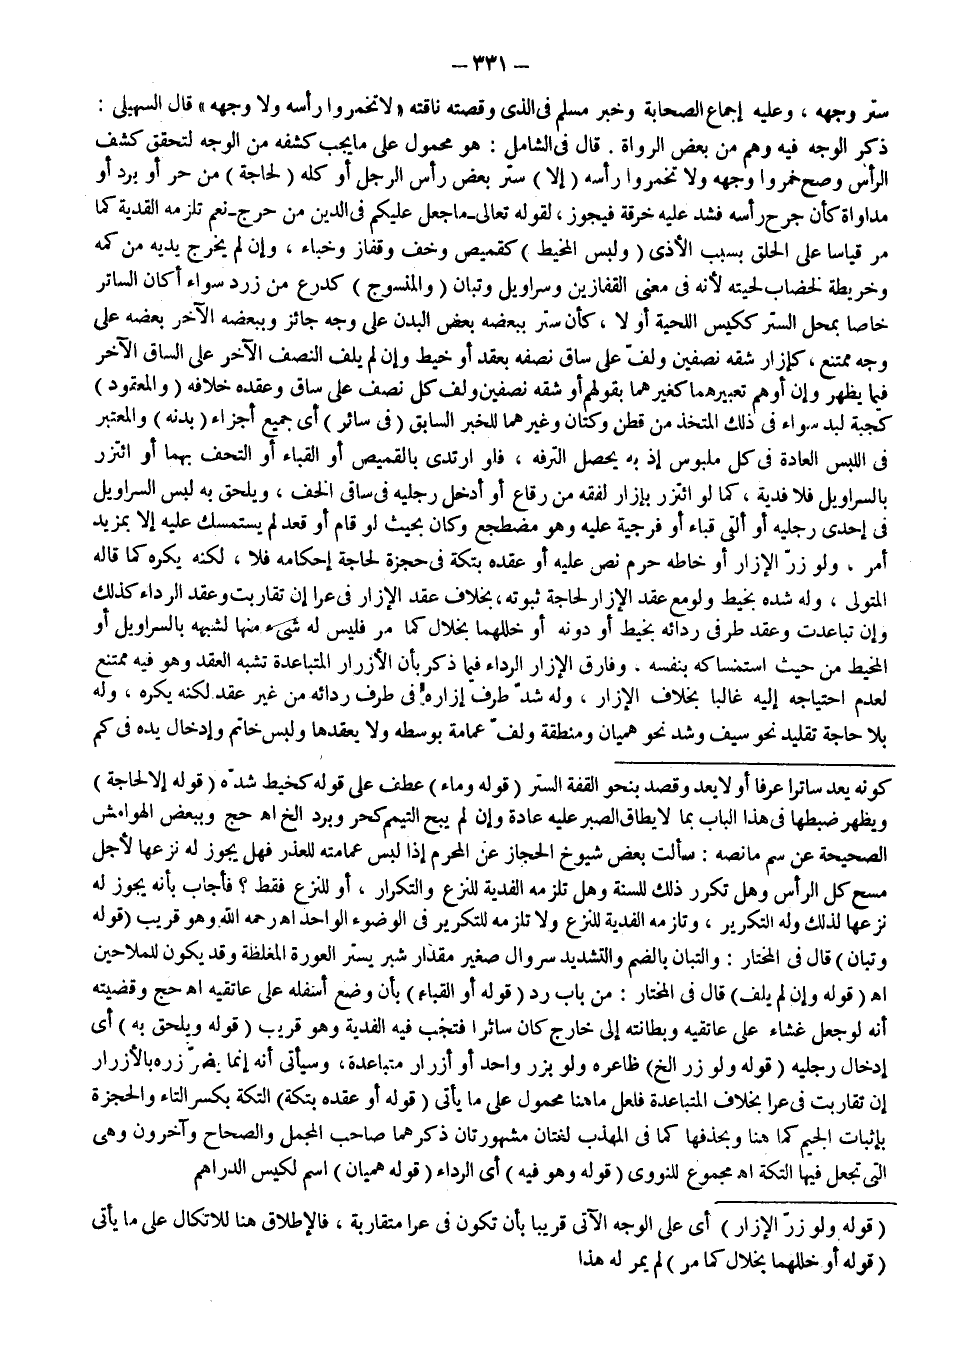 — ٣٣١ —
ستر وجهه ، وعليه إجماع الصحابة وخبر مسلم فى الذى وقصته ناقته «لا تخمروا رأسه ولا وجهه» قال السهيلى :
ذكر الوجه فيه وهم من بعض الرواة . قال فى الشامل : هو محمول على مايجب كشفه من الوجه لتحقق كشف
الرأس وصح خمروا وجهه ولا تخمروا رأسه ( إلا ) ستر بعض رأس الرجل أو كله ( لحاجة ) من حر أو برد أو
مداواة كأن جرح رأسه فشد عليه خرقة فيجوز ، لقوله تعالى ـ ماجعل عليكم فى الدين من حرج ـ نعم تلزمه الفدية كما
مر قياسا على الحلق بسبب الأذى ( ولبس المخيط ) كقميص وخف وقفاز وخباء ، وإن لم يخرج يديه من كمه
وخريطة لخضاب لحيته لأنه فى معنى القفازين وسراويل وتبان ( والمنسوج ) كدرع من زرد سواء أكان الساتر
خاصا بمحل الستر ككيس اللحية أو لا ، كأن ستر ببعضه بعض البدن على وجه جائز وببعضه الآخر بعضه على
وجه ممتنع ، كإزار شقه نصفين ولفّ على ساق نصفه بعقد أو خيط وإن لم يلف النصف الآخر على الساق الآخر
فيما يظهر وإن أوهم تعبيرهما كغيرهما بقولهم أو شقه نصفين ولف كل نصف على ساق وعقده خلافه ( والمعقود )
كجبة لبد سواء فى ذلك المتخذ من قطن وكتان وغيرهما للخبر السابق ( فى سائر ) أى جميع أجزاء ( بدنه ) والمعتبر
فى اللبس العادة فى كل ملبوس إذ به يحصل الترفه ، فلو ارتدى بالقميص أو القباء أو التحف بهما أو اتّزر
بالسراويل فلا فدية ، كما لو اتّزر بإزار لفقه من رقاع أو أدخل رجليه فى ساقى الخف ، ويلحق به لبس السراويل
فى إحدى رجليه أو ألقى قباء أو فرجية عليه وهو مضطجع وكان بحيث لو قام أو قعد لم يستمسك عليه إلا بمزيد
أمر . ولو زرّ الإزار أو خاطه حرم نص عليه أو عقده بتكة فى حجزة لحاجة إحكامه فلا ، لكنه يكره كما قاله
المتولى ، وله شده بخيط ولو مع عقد الإزار لحاجة ثبوته ، بخلاف عقد الإزار فى عرا إن تقاربت وعقد الرداء كذلك
وإن تباعدت وعقد طرفى ردائه بخيط أو دونه أو خللهما بخلال كما مر فليس له شىء منها لشبهه بالسراويل أو
المخيط من حيث استمساكه بنفسه . وفارق الإزار الرداء فيما ذكر بأن الأزرار المتباعدة تشبه العقد وهو فيه ممتنع
لعدم احتياجه إليه غالبا بخلاف الإزار ، وله شدّ طرف إزاره فى طرف ردائه من غير عقد لكنه يكره ، وله
بلا حاجة تقليد نحو سيف وشد نحو هميان ومنطقة ولفّ عمامة بوسطه ولا يعقدها ولبس خاتم وإدخال يده فى كم
كونه يعد ساترا عرفا أو لا يعد وقصد بنحو القفة الستر ( قوله وماء ) عطف على قوله كخيط شدّه ( قوله إلا لحاجة )
ويظهر ضبطها فى هذا الباب بما لا يطاق الصبر عليه عادة وإن لم يبح التيمم كحر وبرد الخ اه حج وببعض الهوامش
الصحيحة عن سم مانصه : سألت بعض شيوخ الحجاز عن المحرم إذا لبس عمامته للعذر فهل يجوز له نزعها لأجل
مسح كل الرأس وهل تكرر ذلك للسنة وهل تلزمه الفدية للنزع والتكرار ، أو للنزع فقط ؟ فأجاب بأنه يجوز له
نزعها لذلك وله التكرير ، وتلزمه الفدية للنزع ولا تلزمه للتكرير فى الوضوء الواحد اه رحمه الله وهو قريب ( قوله
وتبان ) قال فى المختار : والتبان بالضم والتشديد سروال صغير مقدار شبر يستر العورة المغلظة وقد يكون للملاحين
اه ( قوله وإن لم يلف ) قال فى المختار : من باب رد ( قوله أو القباء ) بأن وضع أسفله على عاتقيه اه حج وقضيته
أنه لو جعل غشاء على عاتقيه وبطانته إلى خارج كان ساترا فتجب فيه الفدية وهو قريب ( قوله ويلحق به ) أى
إدخال رجليه ( قوله ولو زر الخ ) ظاهره ولو بزر واحد أو أزرار متباعدة ، وسيأتى أنه إنما يضرّ زره بالأزرار
إن تقاربت فى عرا بخلاف المتباعدة فلعل ماهنا محمول على ما يأتى ( قوله أو عقده بتكة ) التكة بكسر التاء والحجزة
بإثبات الجيم كما هنا وبحذفها كما فى المهذب لغتان مشهورتان ذكرهما صاحب المجمل والصحاح وآخرون وهى
التى تجعل فيها التكة اه مجموع للنووى ( قوله وهو فيه ) أى الرداء ( قوله هميان ) اسم لكيس الدراهم
( قوله ولو زرّ الإزار ) أى على الوجه الآتى قريبا بأن تكون فى عرا متقاربة ، فالإطلاق هنا للاتكال على ما يأتى
( قوله أو خللهما بخلال كما مر ) لم يمر له هذا